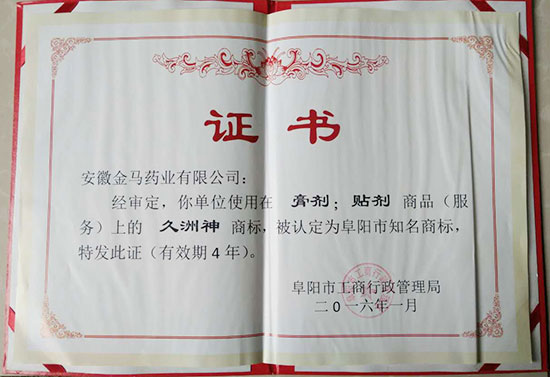 证书
安徽金马药业有限公司：
经审定，你单位使用在 膏剂；贴剂 商品（服
务）上的 久洲神 商标，被认定为阜阳市知名商标，
特发此证（有效期4年）。
阜阳市工商行政管理局
二0一六年一月